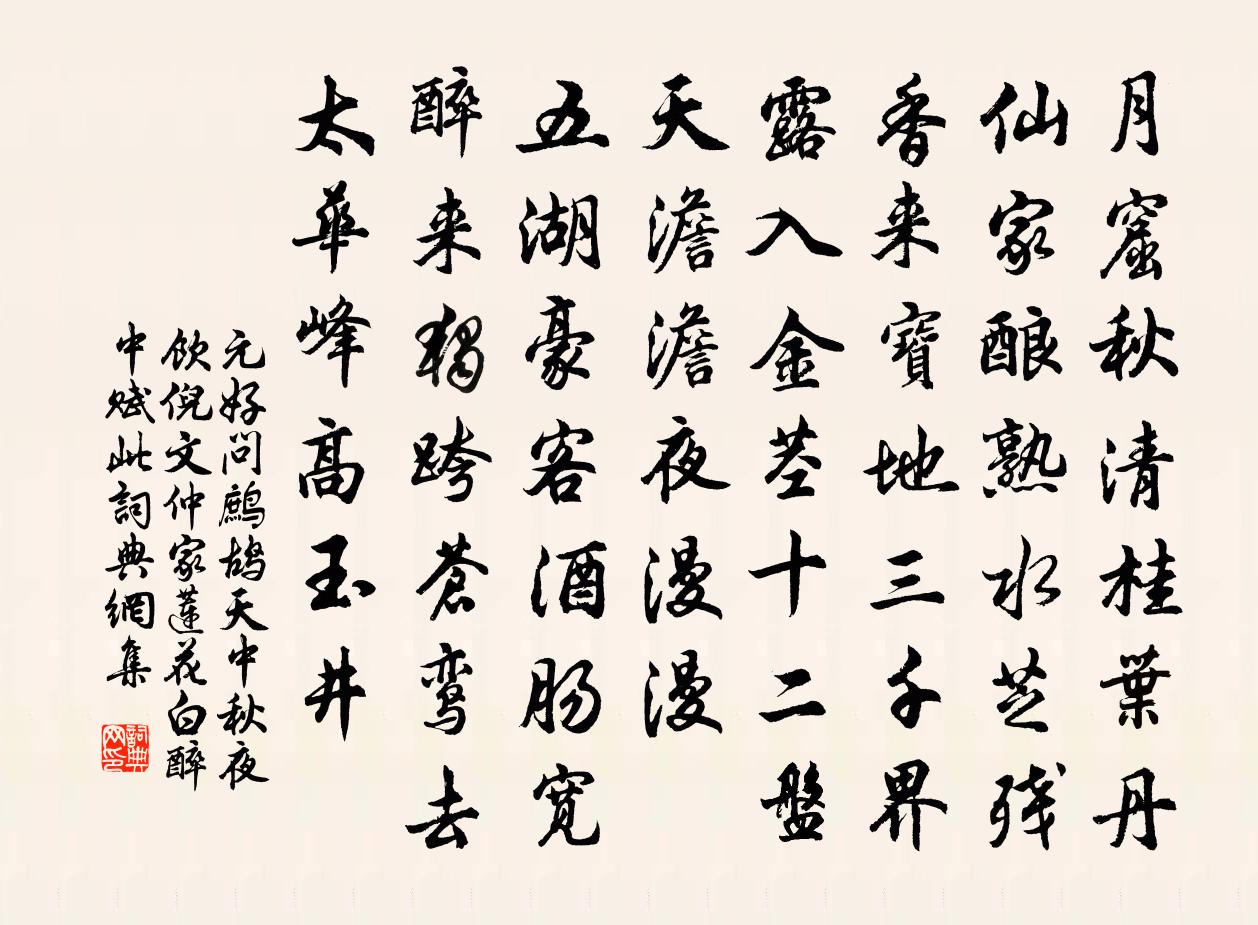 月窟秋清桂葉丹
仙家酿熟水芝残
香来寶地三千界
露入金茎十二盤
天澹澹夜漫漫
五湖豪客酒肠宽
醉来独跨蒼鸾去
太華峰高玉井
元好问鷓鸪天中秋夜
飲倪文仲家蓮花白醉
中赋此詞典網集
詞典网印